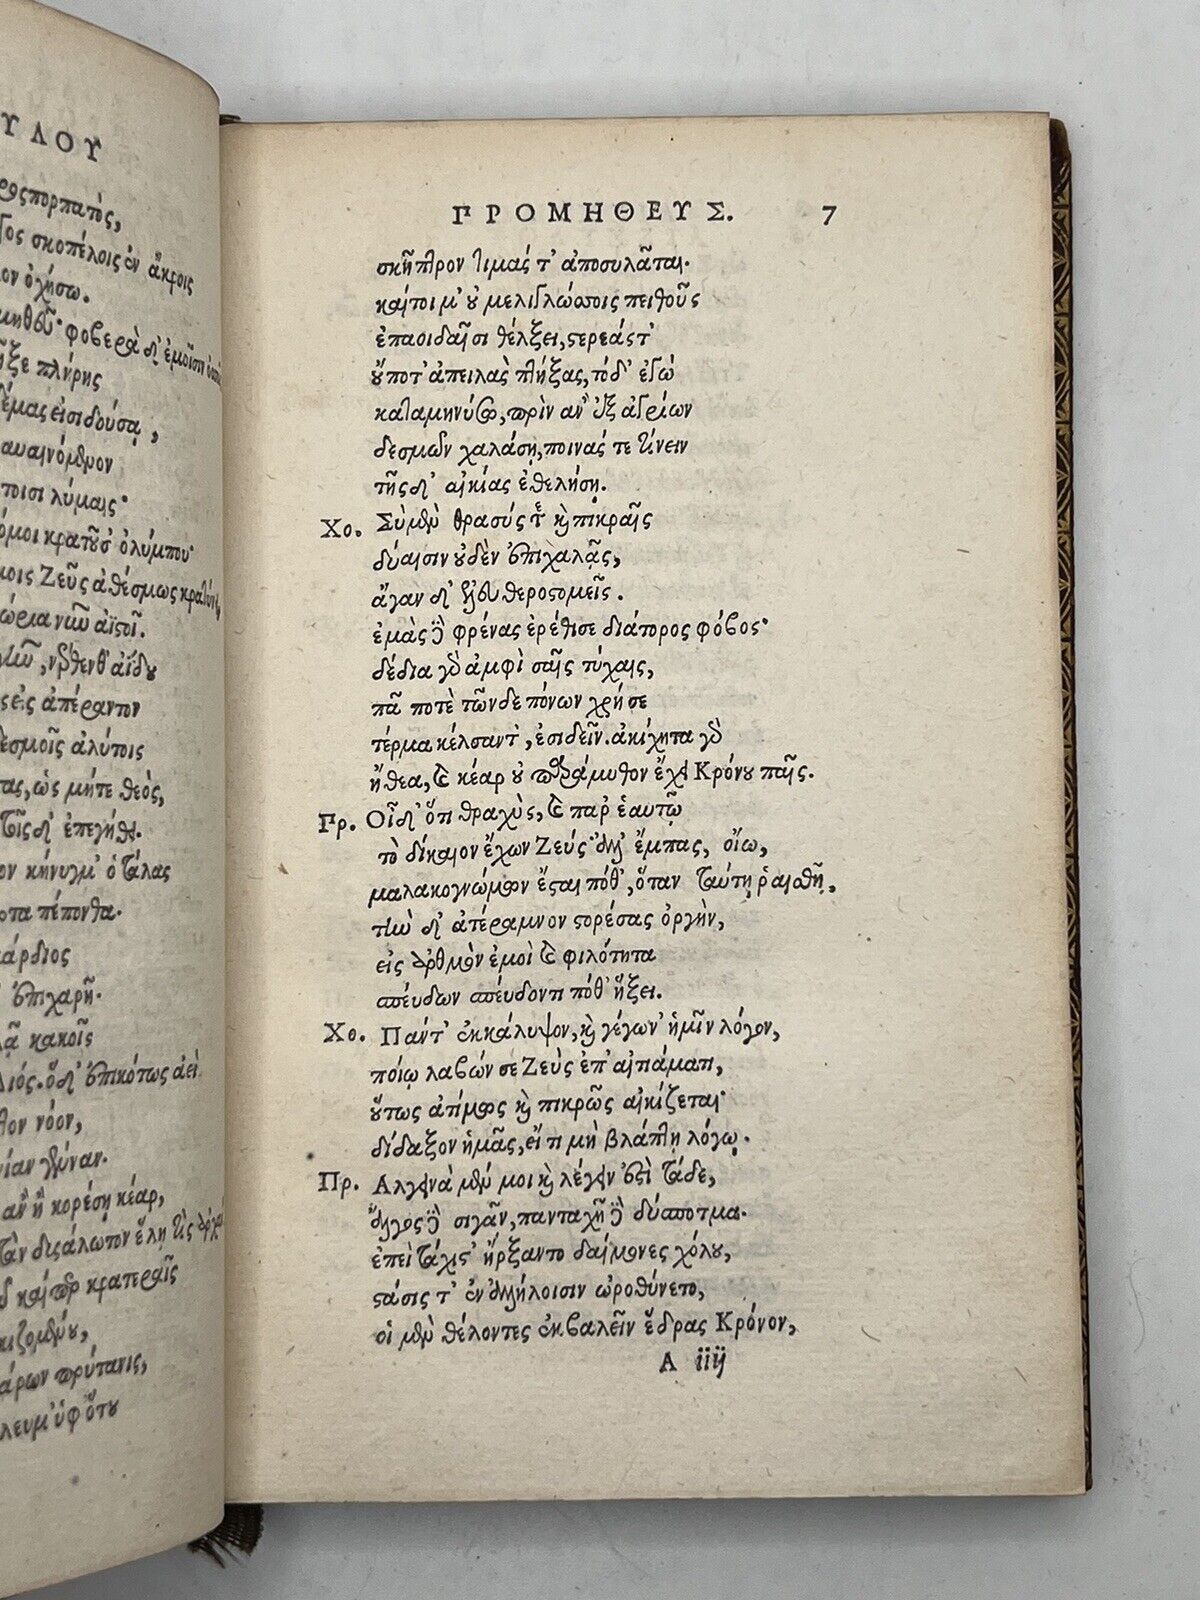 ΥΛΟΥ
σπορπατὸς,
σκοπέλοις ἐν ἄκροις
ὀχήσω.
φοβερὰ δ' ἐμοῖσιν ὄσσοις
ῆξε πλήρης
δέμας εἰσιδούσᾳ,
αυαινόμενον
τοισι λύμαις·
όμοι κρατοῦσ' ὀλύμπου·
μοις Ζεῦς ἀθέσμως κρατύνει,
ώρια νῦν ἀϊστοῖ.
νέρθενθ' ἀΐδου
εἰς ἀπέραντον
δεσμοῖς ἀλύτοις
ὡς μήτε θεὸς,
τις δ' ἐπεγήθει.
κήνυγμ' ὁ τάλας
πέπονθα.
άρδιος
ἐπιχαρῆ.
κακοῖς
Διός. ὅδ' ἐπικότως ἀεὶ
νόον,
αν γένναν.
ἂν ἢ κορέσῃ κέαρ,
τὰν δυσάλωτον ἕλῃ τις ἀρχάν
καίπερ κρατεραῖς
κιζομένου,
άρων πρύτανις,
λευμ' ὑφ' ὅτου
ΠΡΟΜΗΘΕΥΣ. 7
σκῆπτρον τιμάς τ' ἀποσυλᾶται.
καίτοι μ' οὐ μελιγλώσσοις πειθοῦς
ἐπαοιδαῖσι θέλξει, στερεάς τ'
οὔποτ' ἀπειλὰς πτήξας, τόδ' ἐγώ
καταμηνύσω, πρὶν ἂν ἐξ ἀγρίων
δεσμῶν χαλάσῃ, ποινάς τε τίνειν
τῆς δ' αἰκίας ἐθελήσῃ.
Χο. Σὺ μὲν θρασύς τε καὶ πικραῖς
δύαισιν οὐδὲν ἐπιχαλᾷς,
ἄγαν δ' ἐλευθεροστομεῖς.
ἐμὰς δὲ φρένας ἐρέθισε διάτορος φόβος·
δέδια γὰρ ἀμφὶ σαῖς τύχαις,
πᾶ ποτὲ τῶνδε πόνων χρή σε
τέρμα κέλσαντ', ἐσιδεῖν. ἀκίχητα γὰρ
ἤθεα, καὶ κέαρ οὐ παράμυθον ἔχει Κρόνου παῖς.
Πρ. Οἶδ' ὅτι τραχὺς, καὶ παρ' ἑαυτῷ
τὸ δίκαιον ἔχων Ζεύς· ἀλλ' ἔμπας, οἴω,
μαλακογνώμων ἔσται πόθ', ὅταν ταύτῃ ῥαισθῇ,
τὴν δ' ἀτέραμνον στορέσας ὀργὴν,
εἰς ἀρθμὸν ἐμοὶ καὶ φιλότητα
σπεύδων σπεύδοντι πόθ' ἥξει.
Χο. Πάντ' ἐκκάλυψον, καὶ γέγων' ἡμῖν λόγον,
ποίῳ λαβών σε Ζεὺς ἐπ' αἰτιάματι,
οὕτως ἀτίμως καὶ πικρῶς αἰκίζεται·
δίδαξον ἡμᾶς, εἴ τι μὴ βλάπτῃ λόγῳ.
Πρ. Ἀλγεινὰ μέν μοι καὶ λέγειν ἐστὶ τάδε,
ἄλγος δὲ σιγᾶν, πανταχῆ δὲ δύσποτμα.
ἐπεὶ τάχιστ' ἤρξαντο δαίμονες χόλου,
στάσις τ' ἐν ἀλλήλοισιν ὠροθύνετο,
οἱ μὲν θέλοντες ἐκβαλεῖν ἕδρας Κρόνον,
A iiij